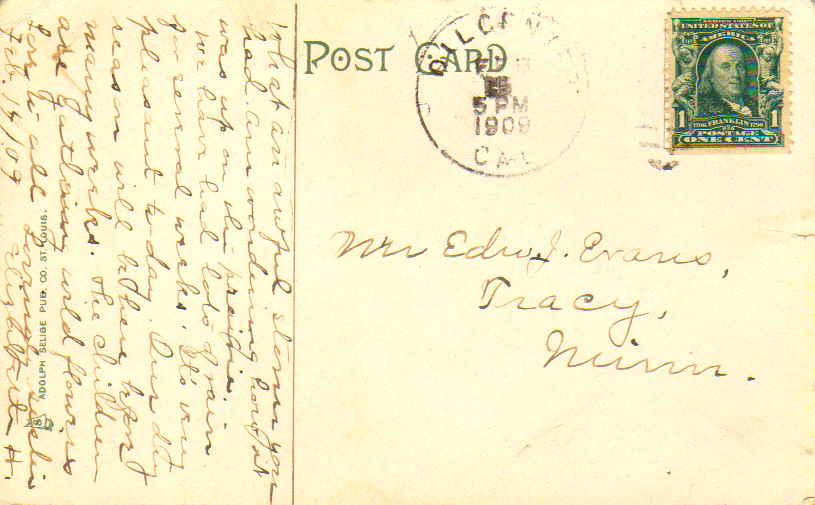 POST CARD
5 PM
1909
CAL
SERIES 1902
UNITED STATES OF
AMERICA
1 1
FRANKLIN
POSTAGE
ONE CENT
Mr Edw J. Evans,
Tracy,
Minn.
What an awful storm you
had. am wondering how it
was up on the prairie.
We have had lots of rain
for several weeks. It's very
pleasant to day. Our dry
reason will be there before
many weeks. The children
are gathering wild flowers
Feb. 15/09 H.
ADOLPH SELIGE PUB. CO. ST. LOUIS.